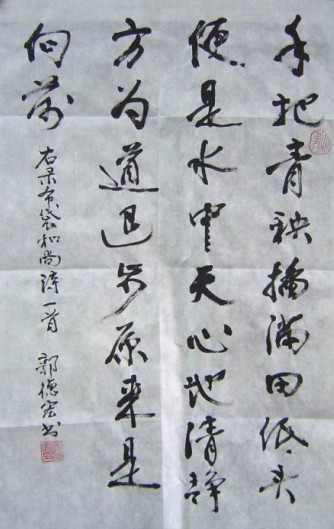 手把青秧插满田低头
便是水中天心地清静
方为道退步原来是
向前
右录布袋和尚诗一首 郭德宏书